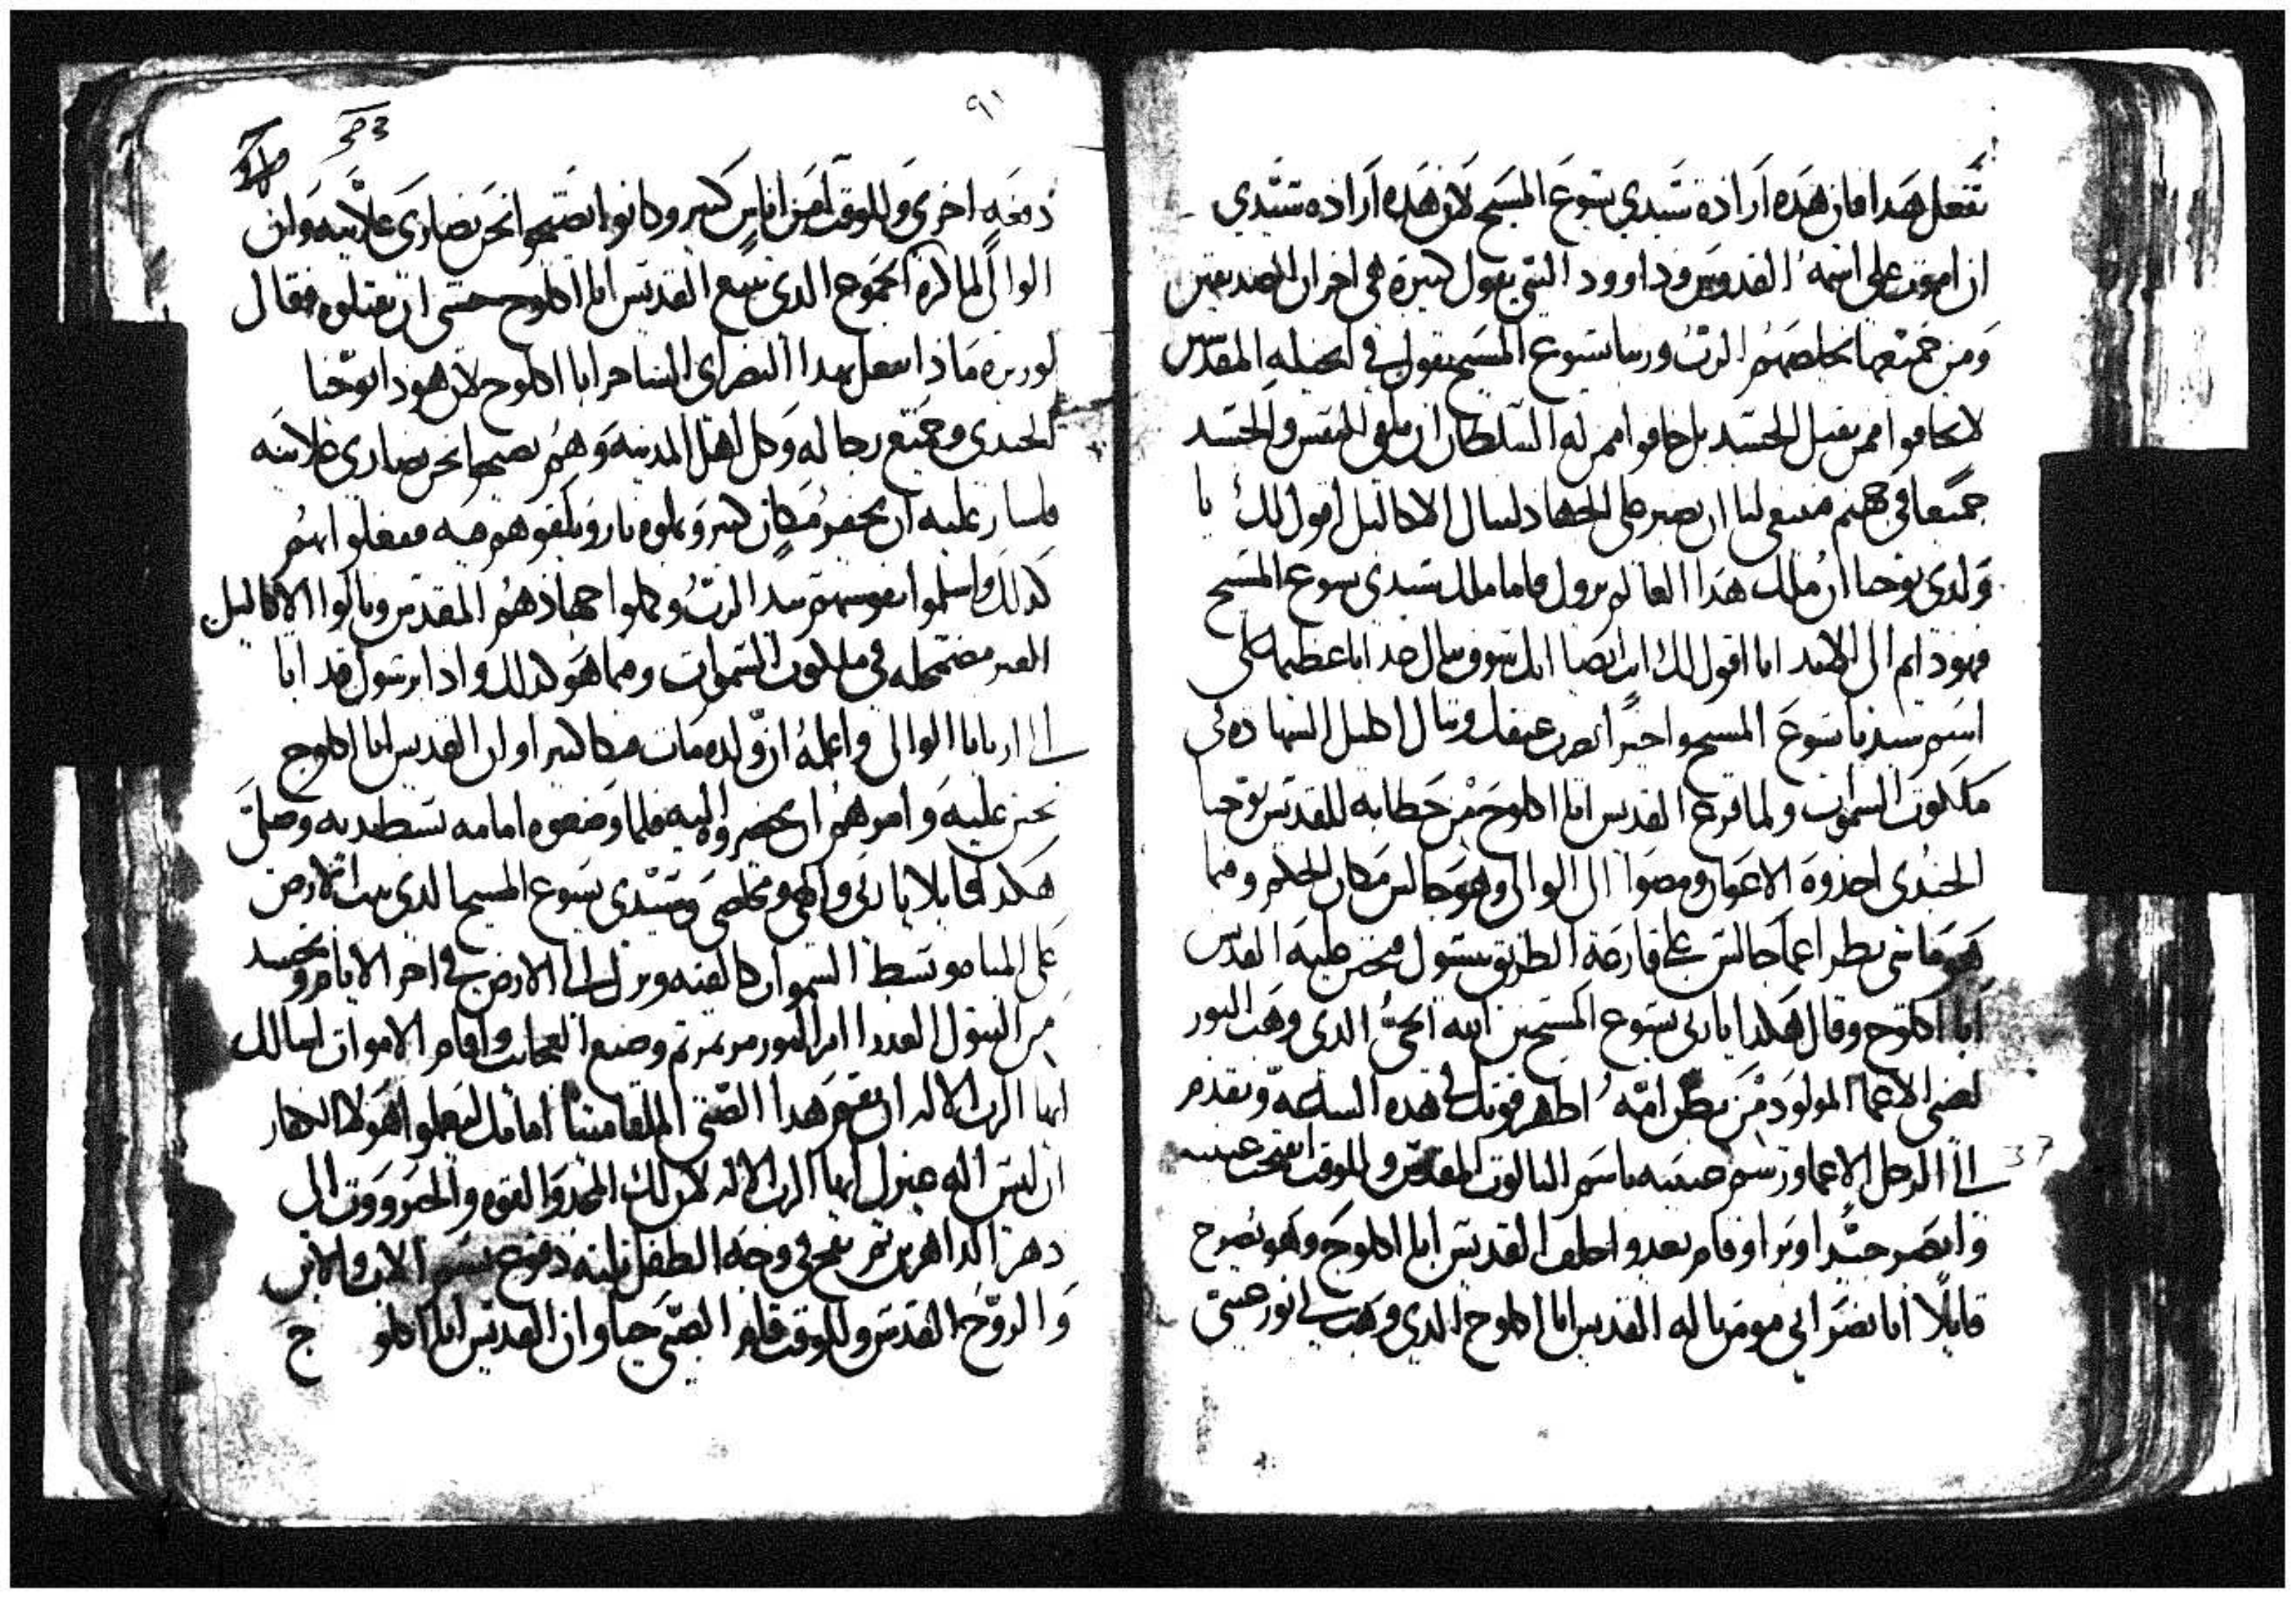 تفعل هدا فان هده ارادة سيدي يسوع المسيح لان هده ارادة سيدي
ان اموت على اسمه القدوس وداوود النبي يقول كتيرة هي احزان الصديقين
ومن جميعها يخلصهم الرب وربنا يسوع المسيح يقول في انجيله المقدس
لا تخافوا ممن يقتل الجسد بل خافوا ممن له السلطان ان يلقي النفس والجسد
جميعا في جهنم فينبغي لنا ان نصبر على الجهاد لننال الاكاليل اقول لك يا
ولدي يوحنا ان ملك هدا العالم يزول فاما ملك سيدي يسوع المسيح
فهو دايم الى الابد انا اقول لك انت ايضا انك سوف تنال جدابا عظيما على
اسم سيدنا يسوع المسيح واخيرا تضرب عنقك وتنال اكليل الشهاده في
ملكوت السموات ولما فرغ القديس ابا اكلوج من خطابه للقديس يوحنا
الجندى اخدوه الاعوان ومضوا الى الوالي وهو جالس مكان الحكم وفيما
هو ماشي نظر اعما جالس على قارعة الطريق يتسول فتحنن عليه القديس
ابا اكلوج وقال هكدا يا ربي يسوع المسيح ابن الله الحي الدي وهب النور
لضى الاعما المولود من بطن امه اظهر قوتك في هده الساعة وتقدم
الى الرجل الاعما ورشم عينيه باسم التالوت المقدس وللوقت انفتحت عينيه
وابصر جيدا وبرا وقام يعدوا خلف القديس ابا اكلوج وهو يصرخ
قايلا انا نصراني مومن باله القديس ابا اكلوج الدي وهب لي نور عيني
٩١
33
دفعه اخرى وللوقت امن اناس كتير وكانوا يصيحوا نحن نصارى علانيه وان
الوالي لما كره الجموع الدى تتبع القديس ابا اكلوج حتى ان يقتلوه فقال
لوزيره مادا نفعل بهدا النصراى الساحر ابا اكلوج لان هودا يوحنا
الجندى وجميع رجاله وكل اهل المدينه وهم يصيحوا نحن نصارى علانيه
فاشار عليه ان يحفر مكان كبير ويملوه نار ويلقوهم فيه ففعلوا بهم
كدلك واسلموا نفوسهم بيد الرب وكملوا جهادهم المقدس ونالوا الاكاليل
الغير مضمحله في ملكوت السموات وفيما هو كدلك وادا برسول قد اتا
الى اريانا الوالي واعلمه ان ولده مات فبكا كتير اوان القديس ابا اكلوج
تحنن عليه وامرهم ان يحضروه اليه فلما وضعوه امامه بسط يديه وصلى
هكدا قايلا يا ربي والهي ومخلصي وسيدى يسوع المسيح الدى تبت الارض
على المياه وبسط السموات كالقبه ونزل الى الارض في اخر الايام وتجسد
من البتول العدرا ام النور مرتمريم وصنع العجايب واقام الاموات اسالك
ايها الرب الاله ان تقيم هدا الصبي الملقا ميتا امامك ليعلموا هولا الكفار
ان ليس اله غيرك ايها الرب الاله لان لك المجد والقوه والجبروت الى
دهر الداهرين تم نفخ في وجه الطفل تلته دفوع بسم الاب والابن
والروح القدس وللوقت قام الصبي حيا وان القديس ابا اكلوج
37